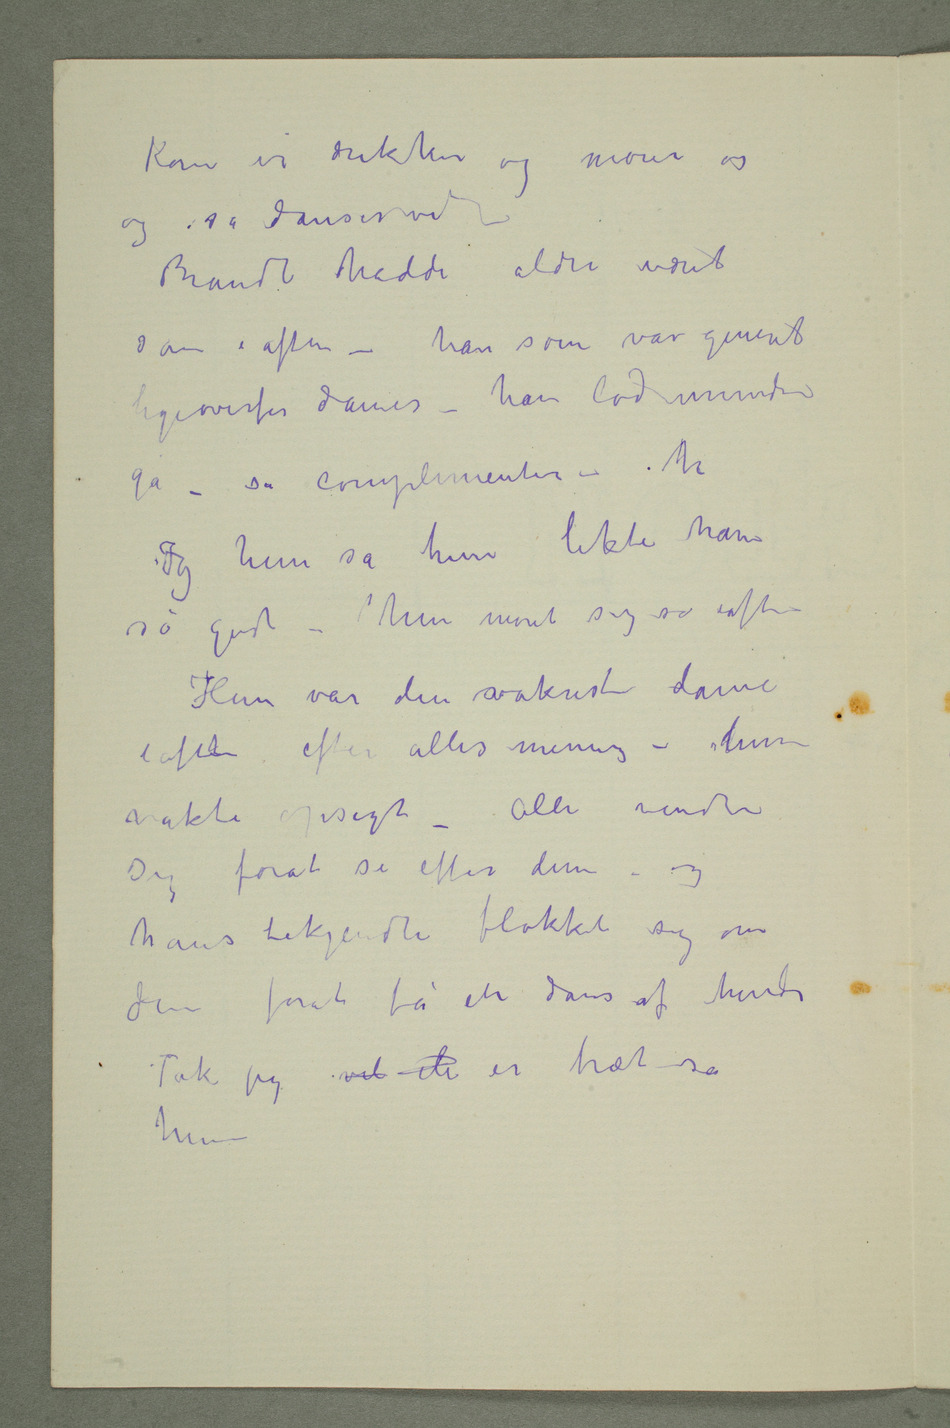 Kom vi drikker og morer os
og så danser vi –
Brandt hadde aldri været
som iaften – han som var genert
ligeoverfor damer – han lod munden
gå – sa complimenter –
Og hun sa hun likte ham
så godt – hun moret sig så iaften
Hun var den vakreste dame
iaften efter alles mening – hun
vakte opsigt – alle vendte
sig forat se efter dem – og
hans bekjendte flokket sig om
dem forat få en dans af hende
Tak jeg vil ikke er træt – sa
hun –